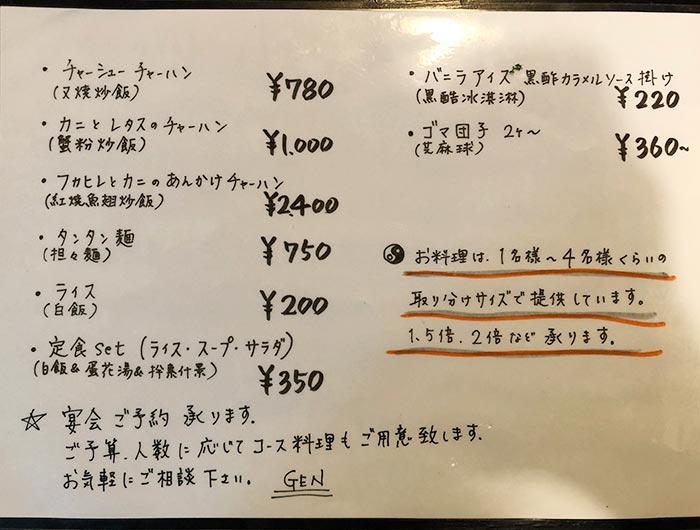 ・チャーシューチャーハン ¥780
(叉焼炒飯)
・カニとレタスのチャーハン
(蟹粉炒飯) ¥1,000
・フカヒレとカニのあんかけチャーハン
(紅焼魚翅炒飯) ¥2,400
・タンタン麺 ¥750
(担々麺)
・ライス ¥200
(白飯)
・定食set(ライス・スープ・サラダ)
(白飯&蛋花湯&拌素什景) ¥350
☆ 宴会ご予約承ります。
ご予算、人数に応じてコース料理もご用意致します。
お気軽にご相談下さい。 GEN
・バニラアイス 黒酢カラメルソース掛け
(黒醋冰淇淋) ¥220
・ゴマ団子 2ケ〜
(芝麻球) ¥360〜
お料理は、1名様〜4名様くらいの
取り分けサイズで提供しています。
1.5倍、2倍など承ります。